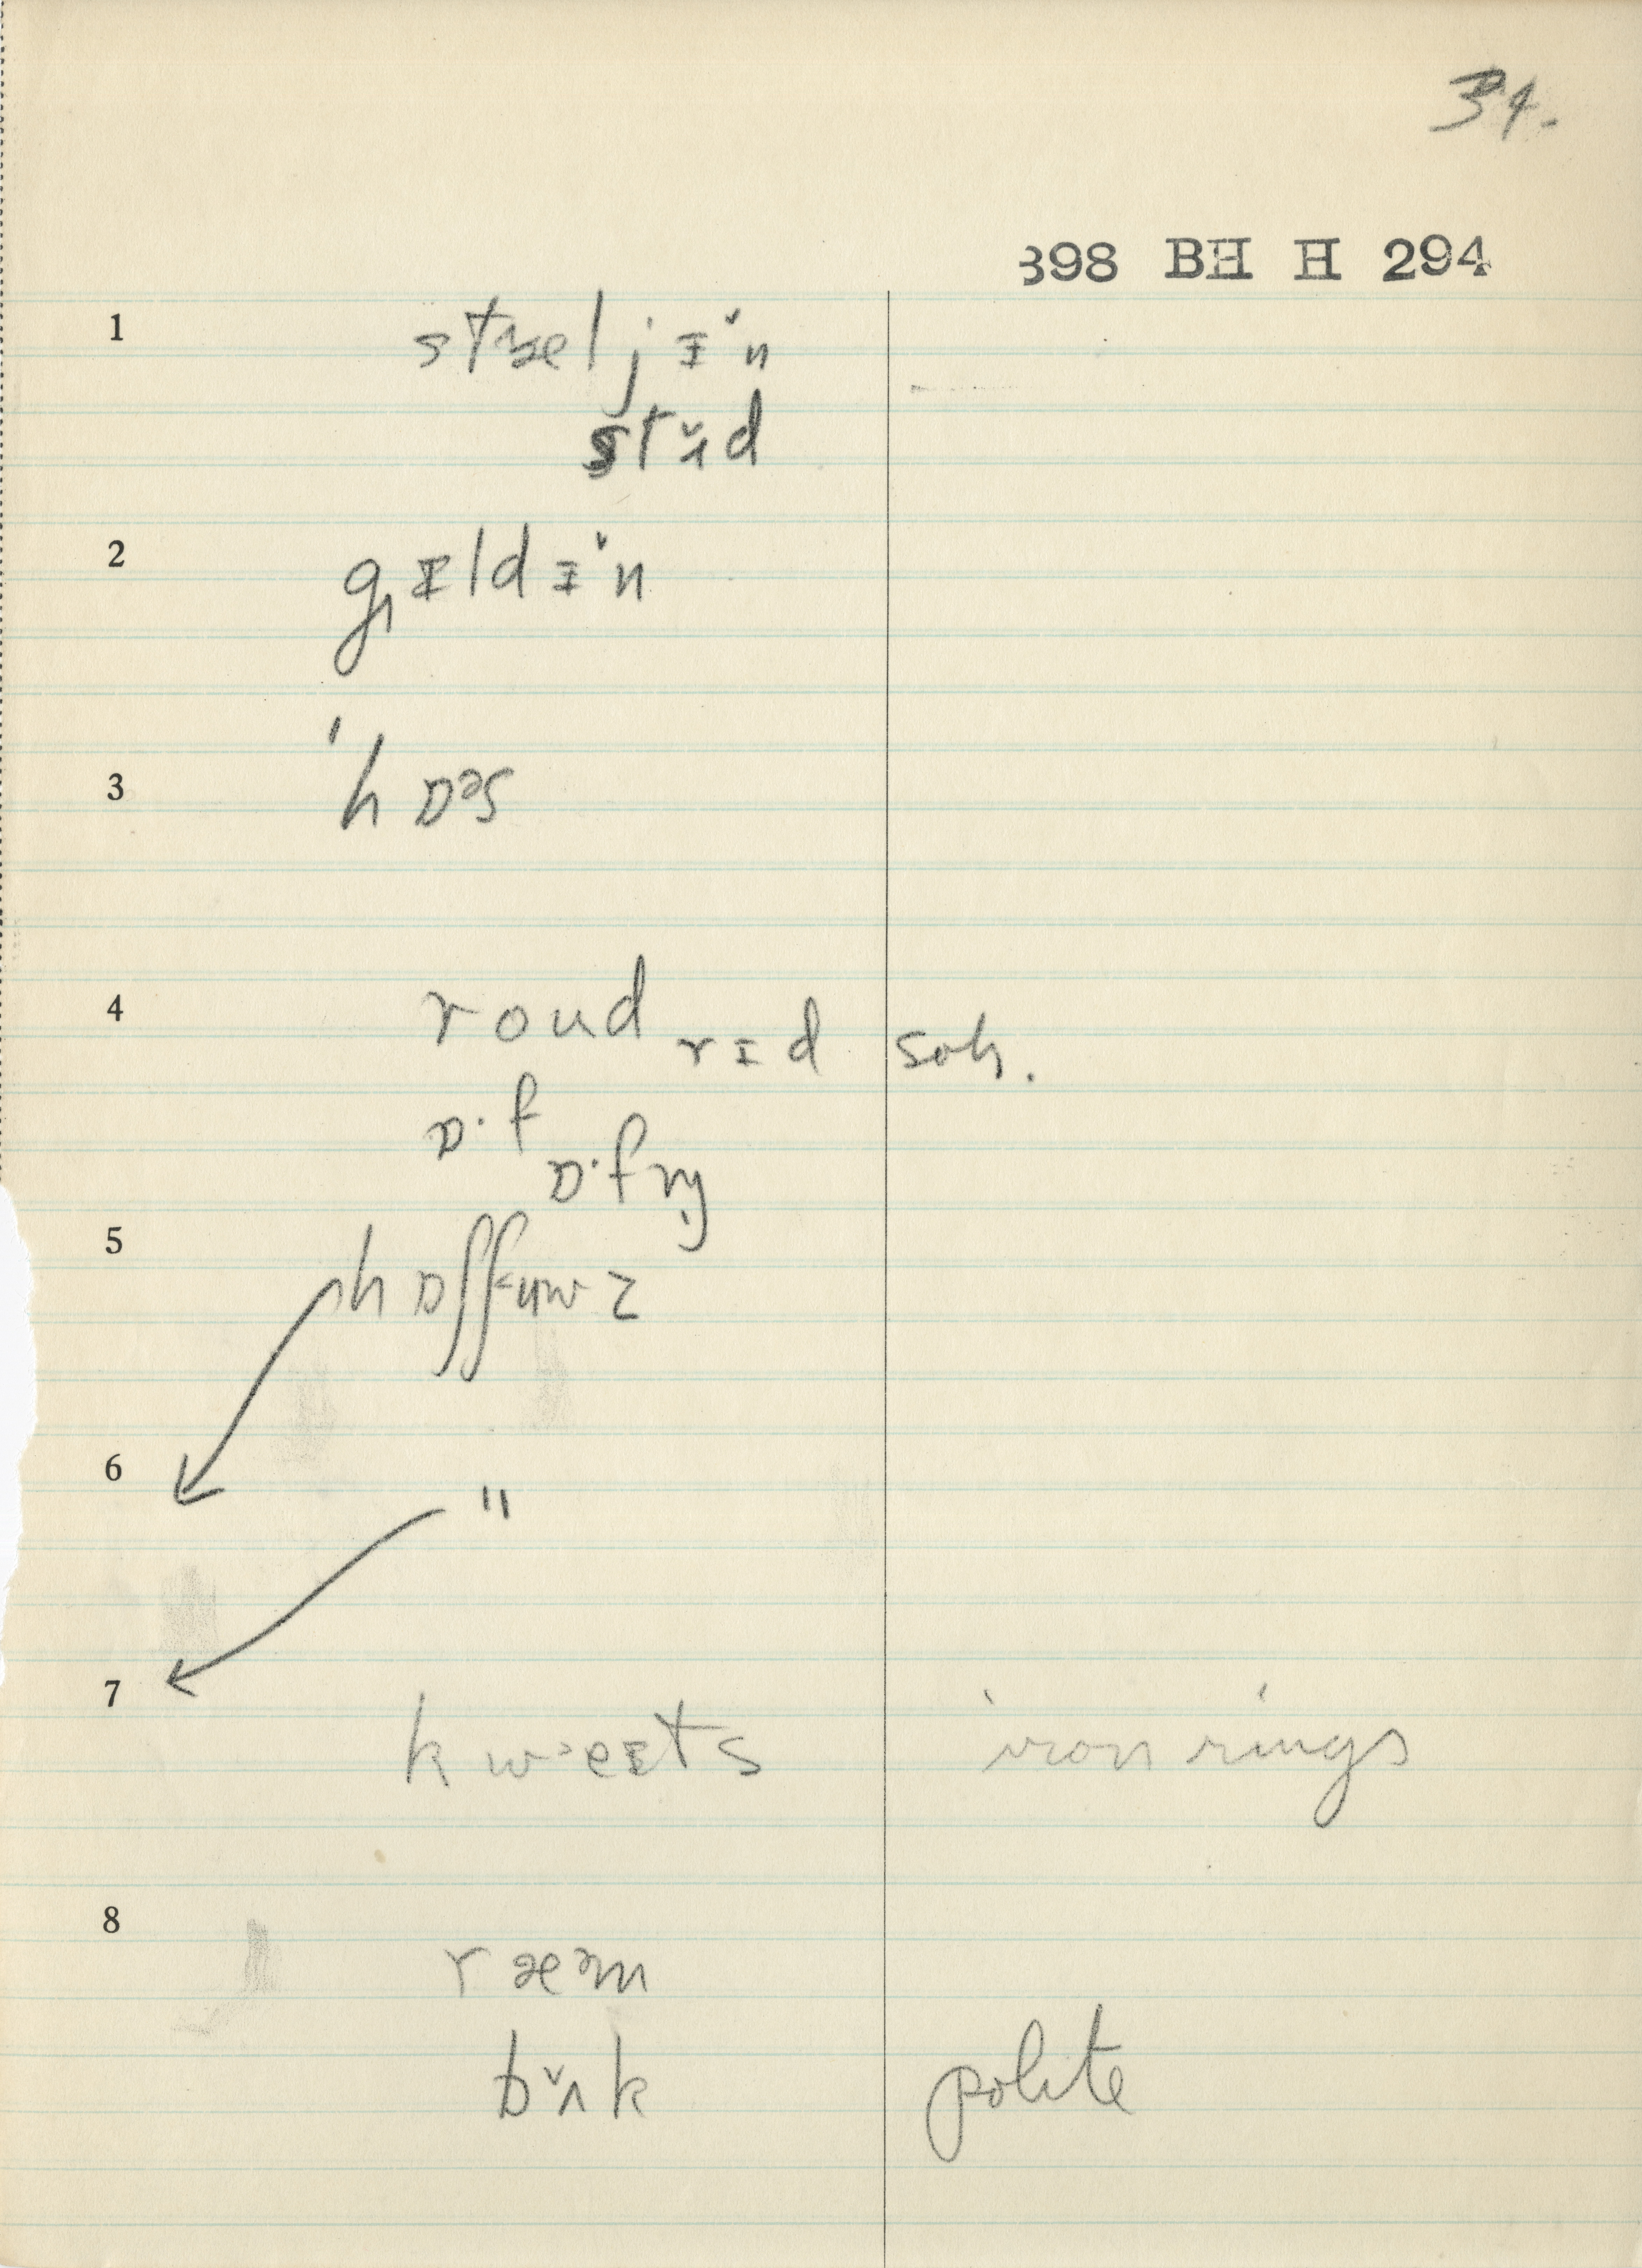 34.
398 BH H 294
1 stæljɪ̌n
stʌ̌d
2 gɪldɪ̌n
3 'hɒəs
4 roud rɪd soh.
ɒ·f
5
6 "
7 kwᵊeɪts iron rings
8 ræᵊm
bʌ̌k polite